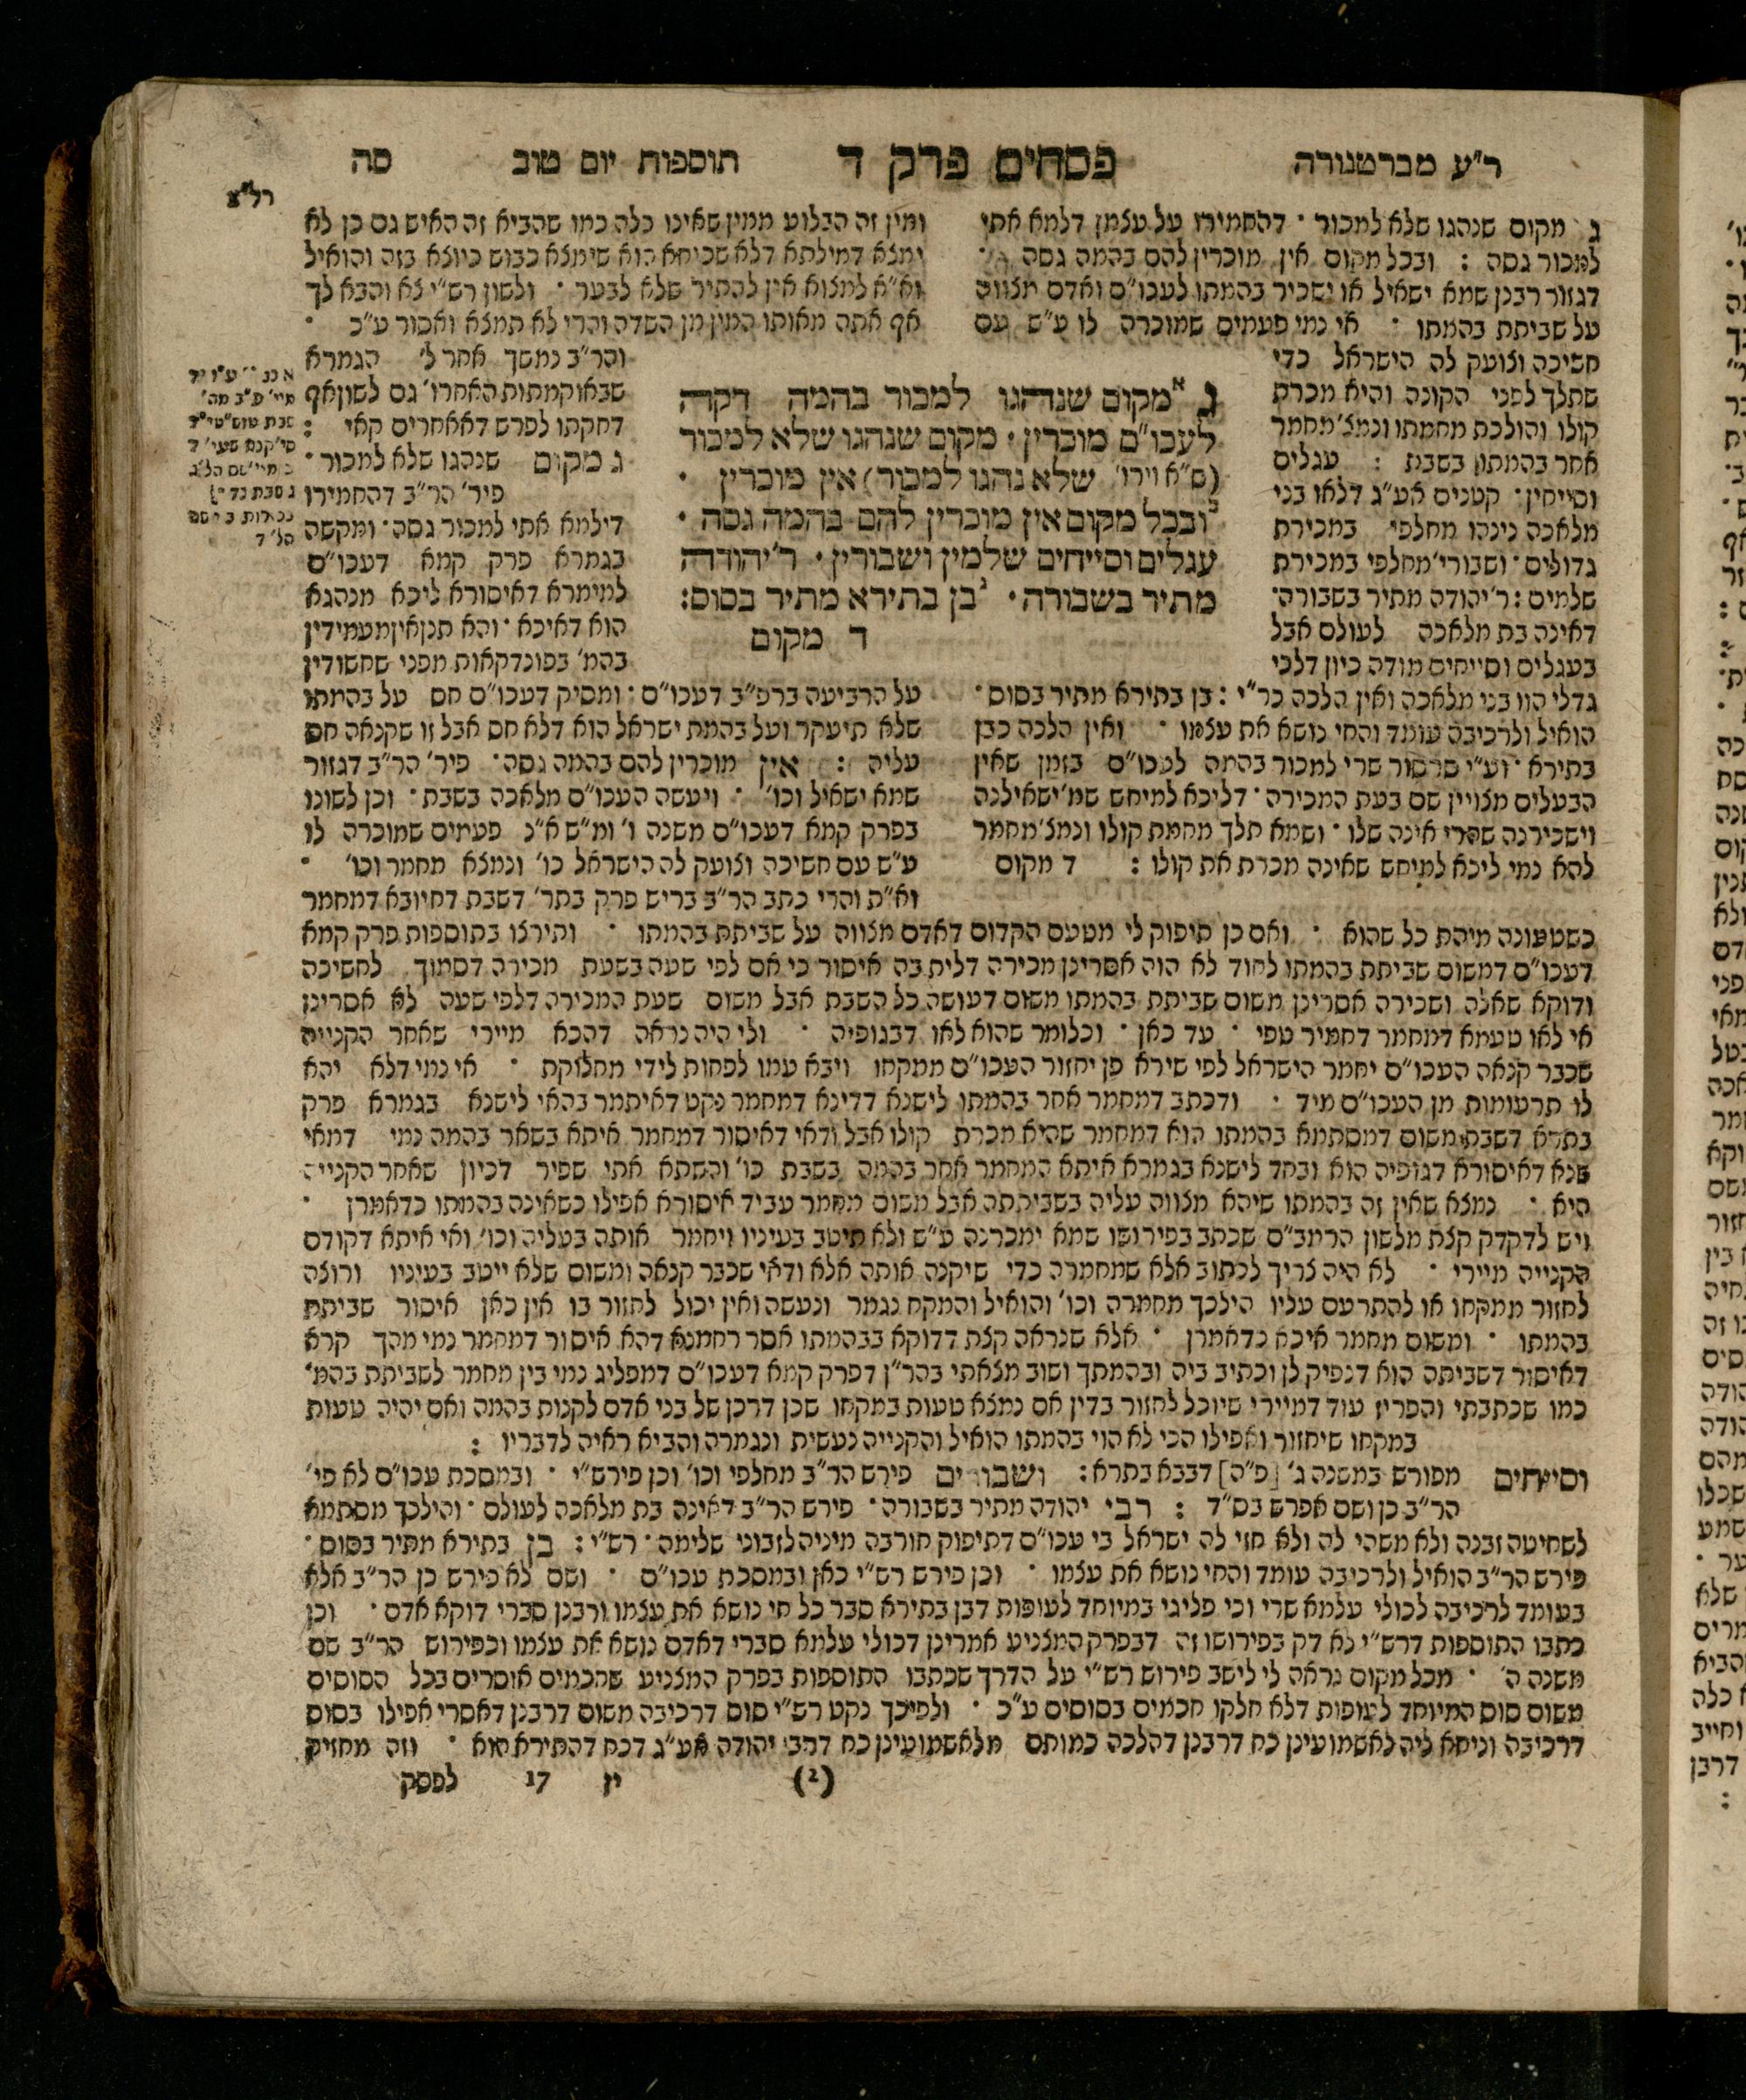 ר״ע מברטנורה
פסחים פרק ד
תוספות יום טוב
סה
ג מקום שנהגו שלא למכור · דהחמירו על עצמן דלמא אתי
למכור גסה : ובכל מקום אין מוכרין להם בהמה גסה ·
דגזור רבנן שמא ישאיל או ישכיר בהמתו לעכו״ם ואדם מצווה
על שביתת בהמתו · אי נמי פעמים שמוכרה לו ע״ש עם
חשיכה וצועק לה הישראל כדי
שתלך לפני הקונה והיא מכרת
קולו והולכת מחמתו ונמצ׳ מחמר
אחר בהמתו בשבת : עגלים
וסייחין · קטנים אע״ג דלאו בני
מלאכה נינהו מחלפי במכירת
גדולים · ושבורי׳ מחלפי במכירת
שלמים : ר׳ יהודה מתיר בשבורה ·
דאינה בת מלאכה לעולם אבל
בעגלים וסייחים מודה כיון דלכי
גדלי הוו בני מלאכה ואין הלכה כר״י : בן בתירא מתיר בסוס ·
הואיל ולרכיבה עומד והחי נושא את עצמו · ואין הלכה כבן
בתירא · וע״י סרסור שרי למכור בהמה לעכו״ם בזמן שאין
הבעלים מצויין שם בעת המכירה · דליכא למיחש שמ׳ ישאילנה
וישכירנה שהרי אינה שלו · ושמא תלך מחמת קולו ונמצ׳ מחמר
להא נמי ליכא למיחש שאינה מכרת את קולו : ד מקום
ג מקום שנהגו למכור בהמה דקה
לעכו״ם מוכרין · מקום שנהגו שלא למכור
(ס״א וירו׳ שלא נהגו למכור) אין מוכרין ·
ובכל מקום אין מוכרין להם בהמה גסה ·
עגלים וסייחים שלמין ושבורין · ר׳ יהודה
מתיר בשבורה · בן בתירא מתיר בסוס :
ד מקום
ומין זה הבלוע ממין שאינו כלה כמו שהביא זה האיש גם כן לא
ימצא דמילתא דלא שכיחא הוא שימצא כבוש כיוצא בזה והואיל
וא״א למצוא אין להתיר שלא לבער · ולשון רש״י צא והבא לך
אף אתה מאותו המין מן השדה והרי לא תמצא ואסור ע״כ ·
והר״ב נמשך אחר ל׳ הגמרא
שבאוקמתות האחרו׳ גם לשון אף
דחקתו לפרש דאאחרים קאי :
ג מקום שנהגו שלא למכור ·
פיר׳ הר״ב דהחמירו
דילמא אתי למכור גסה · ומקשה
בגמרא פרק קמא דעכו״ם
למימרא דאיסורא ליכא מנהגא
הוא דאיכא · והא תנן אין מעמידין
בהמ׳ בפונדקאות מפני שחשודין
על הרביעה ברפ״ב דעכו״ם · ומסיק דעכו״ם חס על בהמתו
שלא תיעקר ועל בהמת ישראל הוא דלא חס אבל זו שקנאה חס
עליה : אין מוכרין להם בהמה גסה · פיר׳ הר״ב דגזור
שמא ישאיל וכו׳ · ויעשה העכו״ם מלאכה בשבת · וכן לשונו
בפרק קמא דעכו״ם משנה ו׳ ומ״ש א״נ פעמים שמוכרה לו
ע״ש עם חשיכה וצועק לה הישראל כו׳ ונמצא מחמר וכו׳ ·
וא״ת והרי כתב הר״ב בריש פרק בתר׳ דשבת דחיובא דמחמר
כשטעונה מיהת כל שהוא · ואם כן תיפוק לי מטעם הקדום דאדם מצווה על שביתת בהמתו · ותירצו בתוספות פרק קמא
דעכו״ם דמשום שביתת בהמתו לחוד לא הוה אסרינן מכירה דלית בה איסור כי אם לפי שעה בשעת מכירה דסמוך לחשיכה
ודוקא שאלה ושכירה אסרינן משום שביתת בהמתו משום דעושה כל השבת אבל משום שעת המכירה דלפי שעה לא אסרינן
אי לאו טעמא דמחמר דחמיר טפי · עד כאן · וכלומר שהוא לאו דבגופיה · ולי היה נראה דהכא מיירי שאחר הקנייה
שכבר קנאה העכו״ם יחמר הישראל לפי שירא פן יחזור העכו״ם ממקחו ויבא עמו לפחות לידי מחלוקת · אי נמי דלא יהא
לו תרעומות מן העכו״ם מיד · ודכתב דמחמר אחר בהמתו לישנא דדינא דמחמר נקט דאיתמר בהאי לישנא בגמרא פרק
בתרא דשבת משום דמסתמא בהמתו הוא דמחמר שהיא מכרת קולו אבל ודאי דאיסור דמחמר איתא בשאר בהמה נמי דמאי
שנא דאיסורא דגופיה הוא ובחד לישנא בגמרא איתא המחמר אחר בהמה בשבת כו׳ והשתא אתי שפיר דכיון שאחר הקנייה
היא · נמצא שאין זה בהמתו שיהא מצווה עליה בשביתתה אבל משום מחמר עביד איסורא אפילו כשאינה בהמתו כדאמרן ·
ויש לדקדק קצת מלשון הרמב״ם שכתב בפירושו שמא ימכרנה ע״ש ולא תיטב בעיניו ויחמר אותה בעליה וכו׳ ואי איתא דקודם
הקנייה מיירי · לא היה צריך לכתוב אלא שמחמרה כדי שיקנה אותה אלא ודאי שכבר קנאה ומשום שלא ייטב בעיניו ורוצה
לחזור ממקחו או להתרעם עליו הילכך מחמרה וכו׳ והואיל והמקח נגמר ונעשה ואין יכול לחזור בו אין כאן איסור שביתת
בהמתו · ומשום מחמר איכא כדאמרן · אלא שנראה קצת דדוקא בבהמתו אסר רחמנא דהא איסור דמחמר נמי מהך קרא
דאיסור דשביתה הוא דנפיק לן וכתיב ביה ובהמתך ושוב מצאתי בהר״ן דפרק קמא דעכו״ם דמפליג נמי בין מחמר לשביתת בהמ׳
כמו שכתבתי והפריז עוד דמיירי שיוכל לחזור בדין אם נמצא טעות במקחו שכן דרכן של בני אדם לקנות בהמה ואם יהיה טעות
במקחו שיחזור ואפילו הכי לא הוי בהמתו הואיל והקנייה נעשית ונגמרה והביא ראיה לדבריו :
וסייחים מפורש במשנה ג׳ [פ״ה] דבבא בתרא : ושבורים פירש הר״ב מחלפי וכו׳ וכן פירש״י · ובמסכת עכו״ם לא פי׳
הר״ב כן ושם אפרש בס״ד : רבי יהודה מתיר בשבורה · פירש הר״ב דאינה בת מלאכה לעולם · והילכך מסתמא
לשחיטה זבנה ולא משהי לה ולא חזי לה ישראל בי עכו״ם דתיפוק חורבה מיניה לזבוני שלימה · רש״י : בן בתירא מתיר בסוס ·
פירש הר״ב הואיל ולרכיבה עומד והחי נושא את עצמו · וכן פירש רש״י כאן ובמסכת עכו״ם · ושם לא פירש כן הר״ב אלא
בעומד לרכיבה לכולי עלמא שרי וכי פליגי במיוחד לעופות דבן בתירא סבר כל חי נושא את עצמו ורבנן סברי דוקא אדם · וכן
כתבו התוספות דרש״י לא דק בפירושו זה דבפרק המצניע אמרינן דכולי עלמא סברי דאדם נושא את עצמו וכפירוש הר״ב שם
משנה ה׳ · מכל מקום נראה לי לישב פירוש רש״י על הדרך שכתבו התוספות בפרק המצניע שחכמים אוסרים בכל הסוסים
משום סוס המיוחד לעופות דלא חלקו חכמים בסוסים ע״כ · ולפיכך נקט רש״י סוס דרכיבה משום דרבנן דאסרי אפילו בסוס
דרכיבה וניחא ליה לאשמועינן כח דרבנן דהלכה כמותם מלאשמועינן כח דרבי יהודה אע״ג דכח דהתירא הוא · וזה מחזיק
(2)
יז
17
לפסק